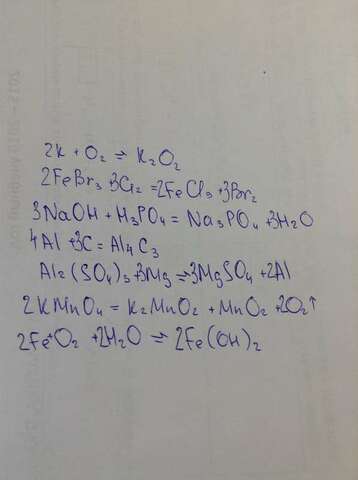 2K + O₂ → K₂O₂
2FeBr₃ + 3Cl₂ = 2FeCl₃ + 3Br₂
3NaOH + H₃PO₄ = Na₃PO₄ + 3H₂O
4Al + 3C = Al₄C₃
Al₂(SO₄)₃ + 3Mg → 3MgSO₄ + 2Al
2KMnO₄ = K₂MnO₂ + MnO₂ + 2O₂↑
2Fe + O₂ + 2H₂O → 2Fe(OH)₂